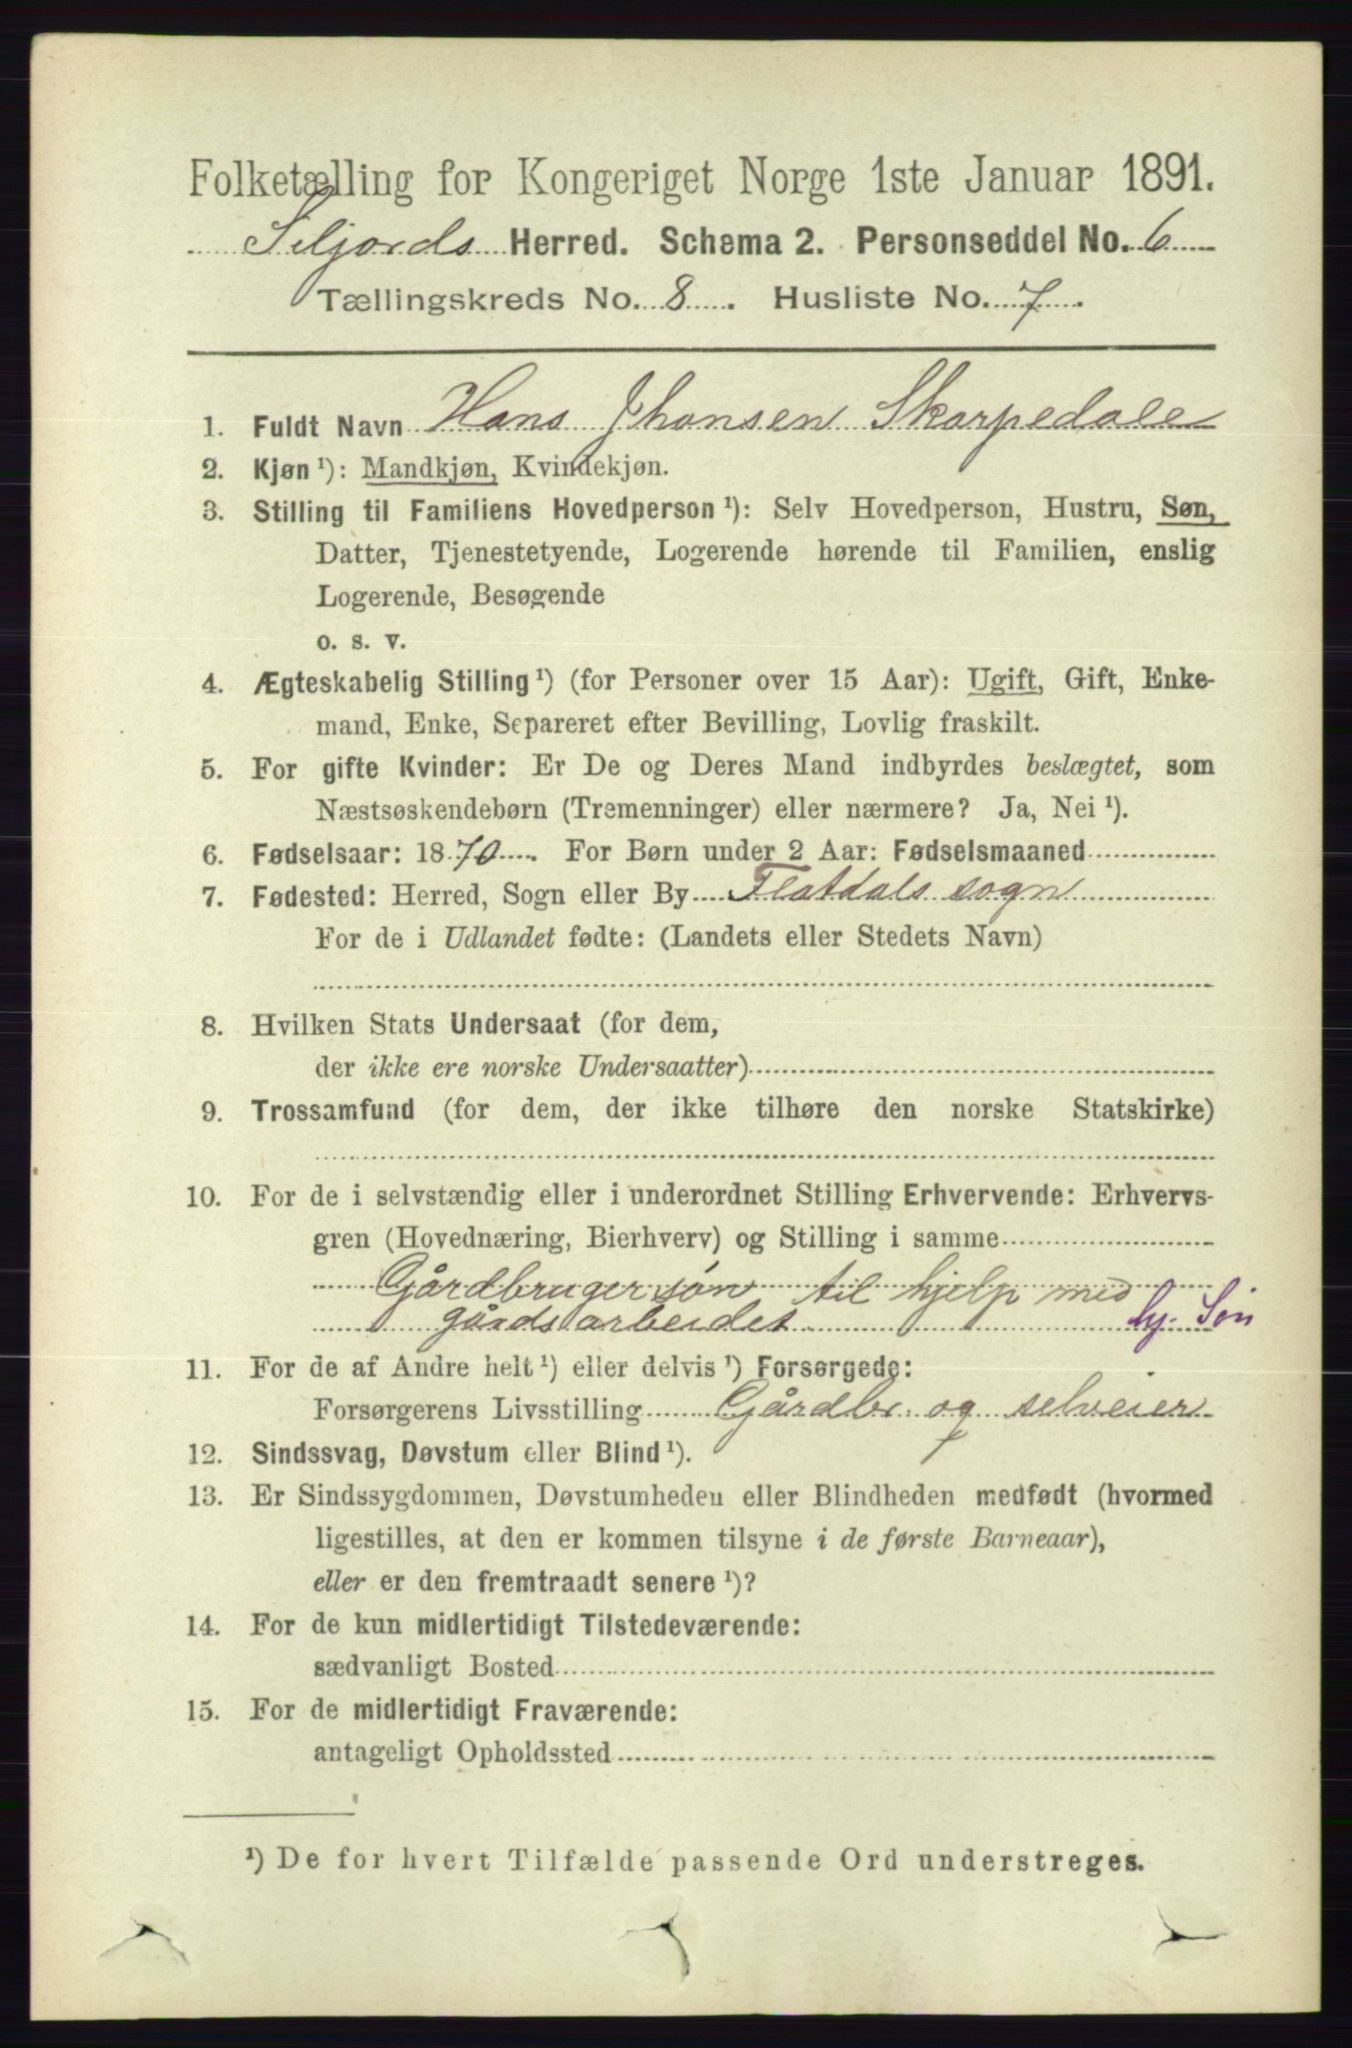 Folketælling for Kongeriget Norge 1ste Januar 1891.
Seljords Herred. Schema 2. Personseddel No. 6
Tællingskreds No. 8. Husliste No. 7.
1. Fuldt Navn Hans Jhansen Skarpedale
2. Kjøn ¹): Mandkjøn, Kvindekjøn.
3. Stilling til Familiens Hovedperson ¹): Selv Hovedperson, Hustru, Søn,
Datter, Tjenestetyende, Logerende hørende til Familien, enslig
Logerende, Besøgende
o. s. v.
4. Ægteskabelig Stilling ¹) (for Personer over 15 Aar): Ugift, Gift, Enke-
mand, Enke, Separeret efter Bevilling, Lovlig fraskilt.
5. For gifte Kvinder: Er De og Deres Mand indbyrdes beslægtet, som
Næstsøskendebørn (Tremenninger) eller nærmere? Ja, Nei ¹).
6. Fødselsaar: 1870. For Børn under 2 Aar: Fødselsmaaned
7. Fødested: Herred, Sogn eller By Flatdals sogn
For de i Udlandet fødte: (Landets eller Stedets Navn)
8. Hvilken Stats Undersaat (for dem,
der ikke ere norske Undersaatter)
9. Trossamfund (for dem, der ikke tilhøre den norske Statskirke)
10. For de i selvstændig eller i underordnet Stilling Erhvervende: Erhvervs-
gren (Hovednæring, Bierhverv) og Stilling i samme
Gårdbrugersøn til hjelp med
gårdsarbeidet hj. Søn
11. For de af Andre helt ¹) eller delvis ¹) Forsørgede:
Forsørgerens Livsstilling Gårdbr. og selveier
12. Sindssvag, Døvstum eller Blind ¹).
13. Er Sindssygdommen, Døvstumheden eller Blindheden medfødt (hvormed
ligestilles, at den er kommen tilsyne i de første Barneaar),
eller er den fremtraadt senere ¹)?
14. For de kun midlertidigt Tilstedeværende:
sædvanligt Bosted
15. For de midlertidigt Fraværende:
antageligt Opholdssted
¹) De for hvert Tilfælde passende Ord understreges.